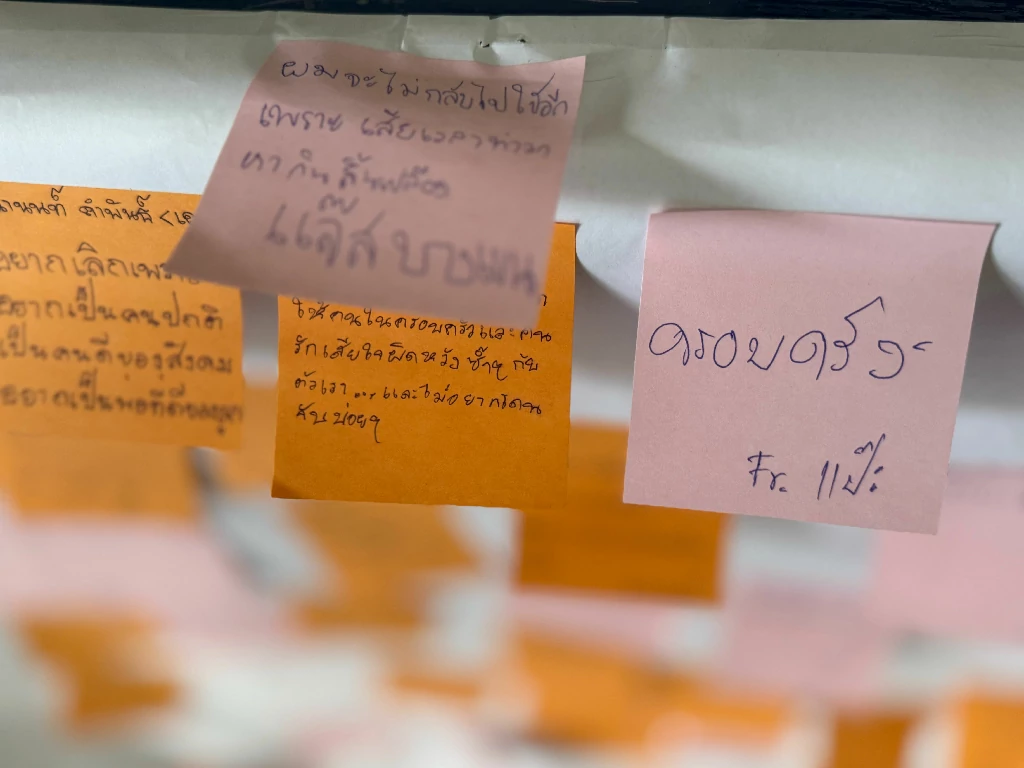 ผมจะไม่กลับไปใช้อีก
เพราะ เสียเวลาทำมา
หากิน สิ้นเปลือง
แจ๊ส บางมด
อยากเลิกเพราะ
อยากเป็นคนปกติ
เป็นคนดีของสังคม
อยากเป็นพ่อที่ดีของลูก
ให้คนในครอบครัวและคน
รักเสียใจผิดหวัง ซ้ำๆ กับ
ตัวเรา ... และไม่อยากโดน
จับบ่อยๆ
ครอบครัว
Fr. แป๊ะ